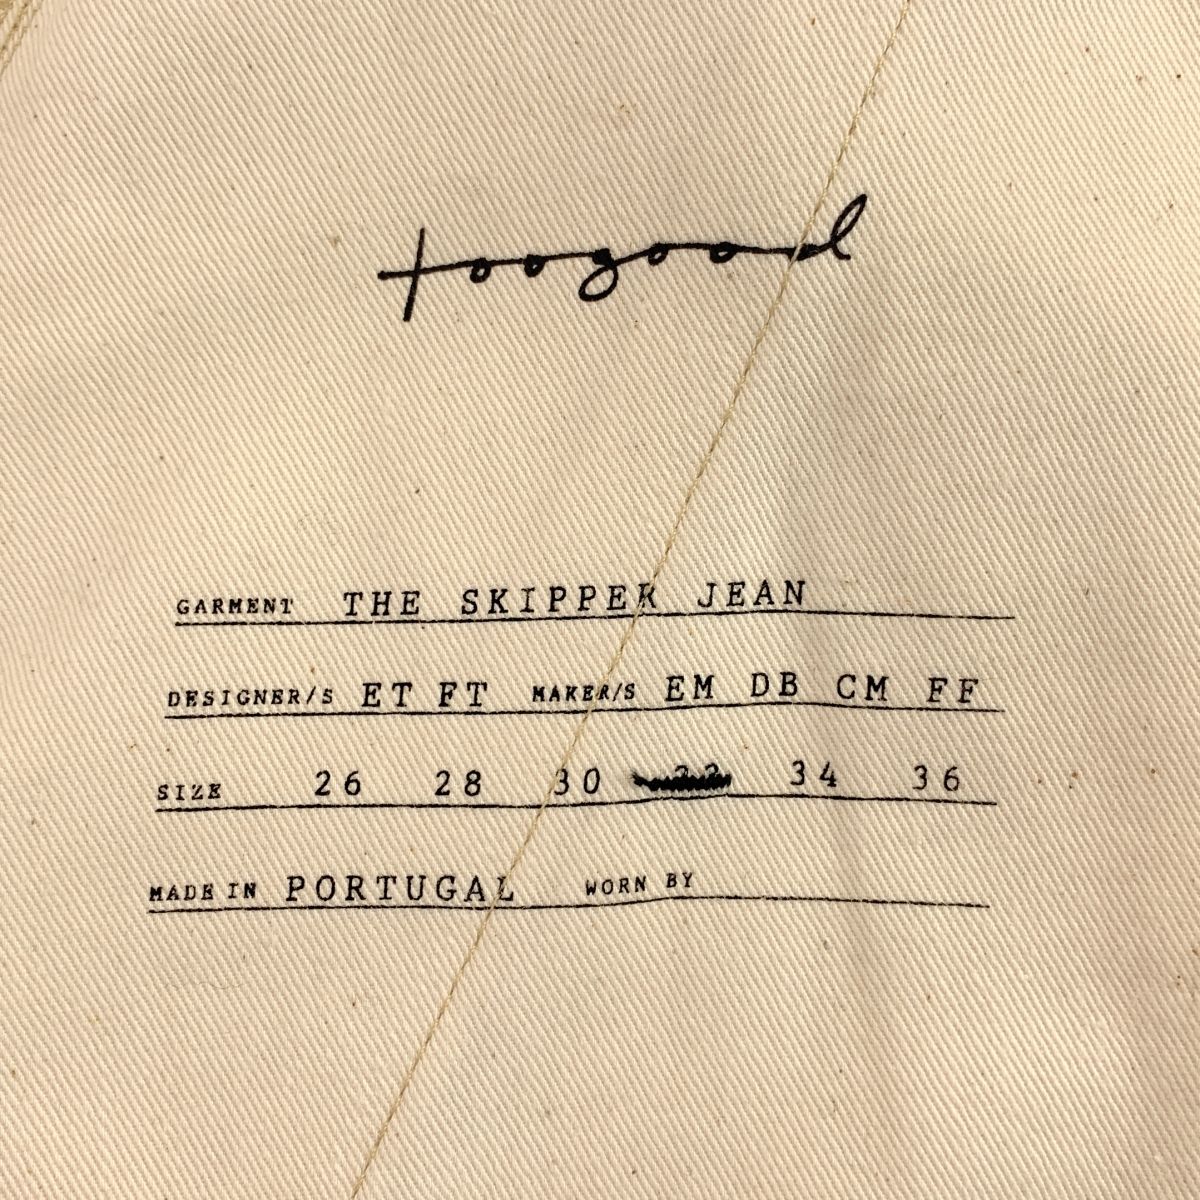 toogood
GARMENT THE SKIPPER JEAN
DESIGNER/S ET FT MAKER/S EM DB CM FF
SIZE 26 28 30 32 34 36
MADE IN PORTUGAL WORN BY